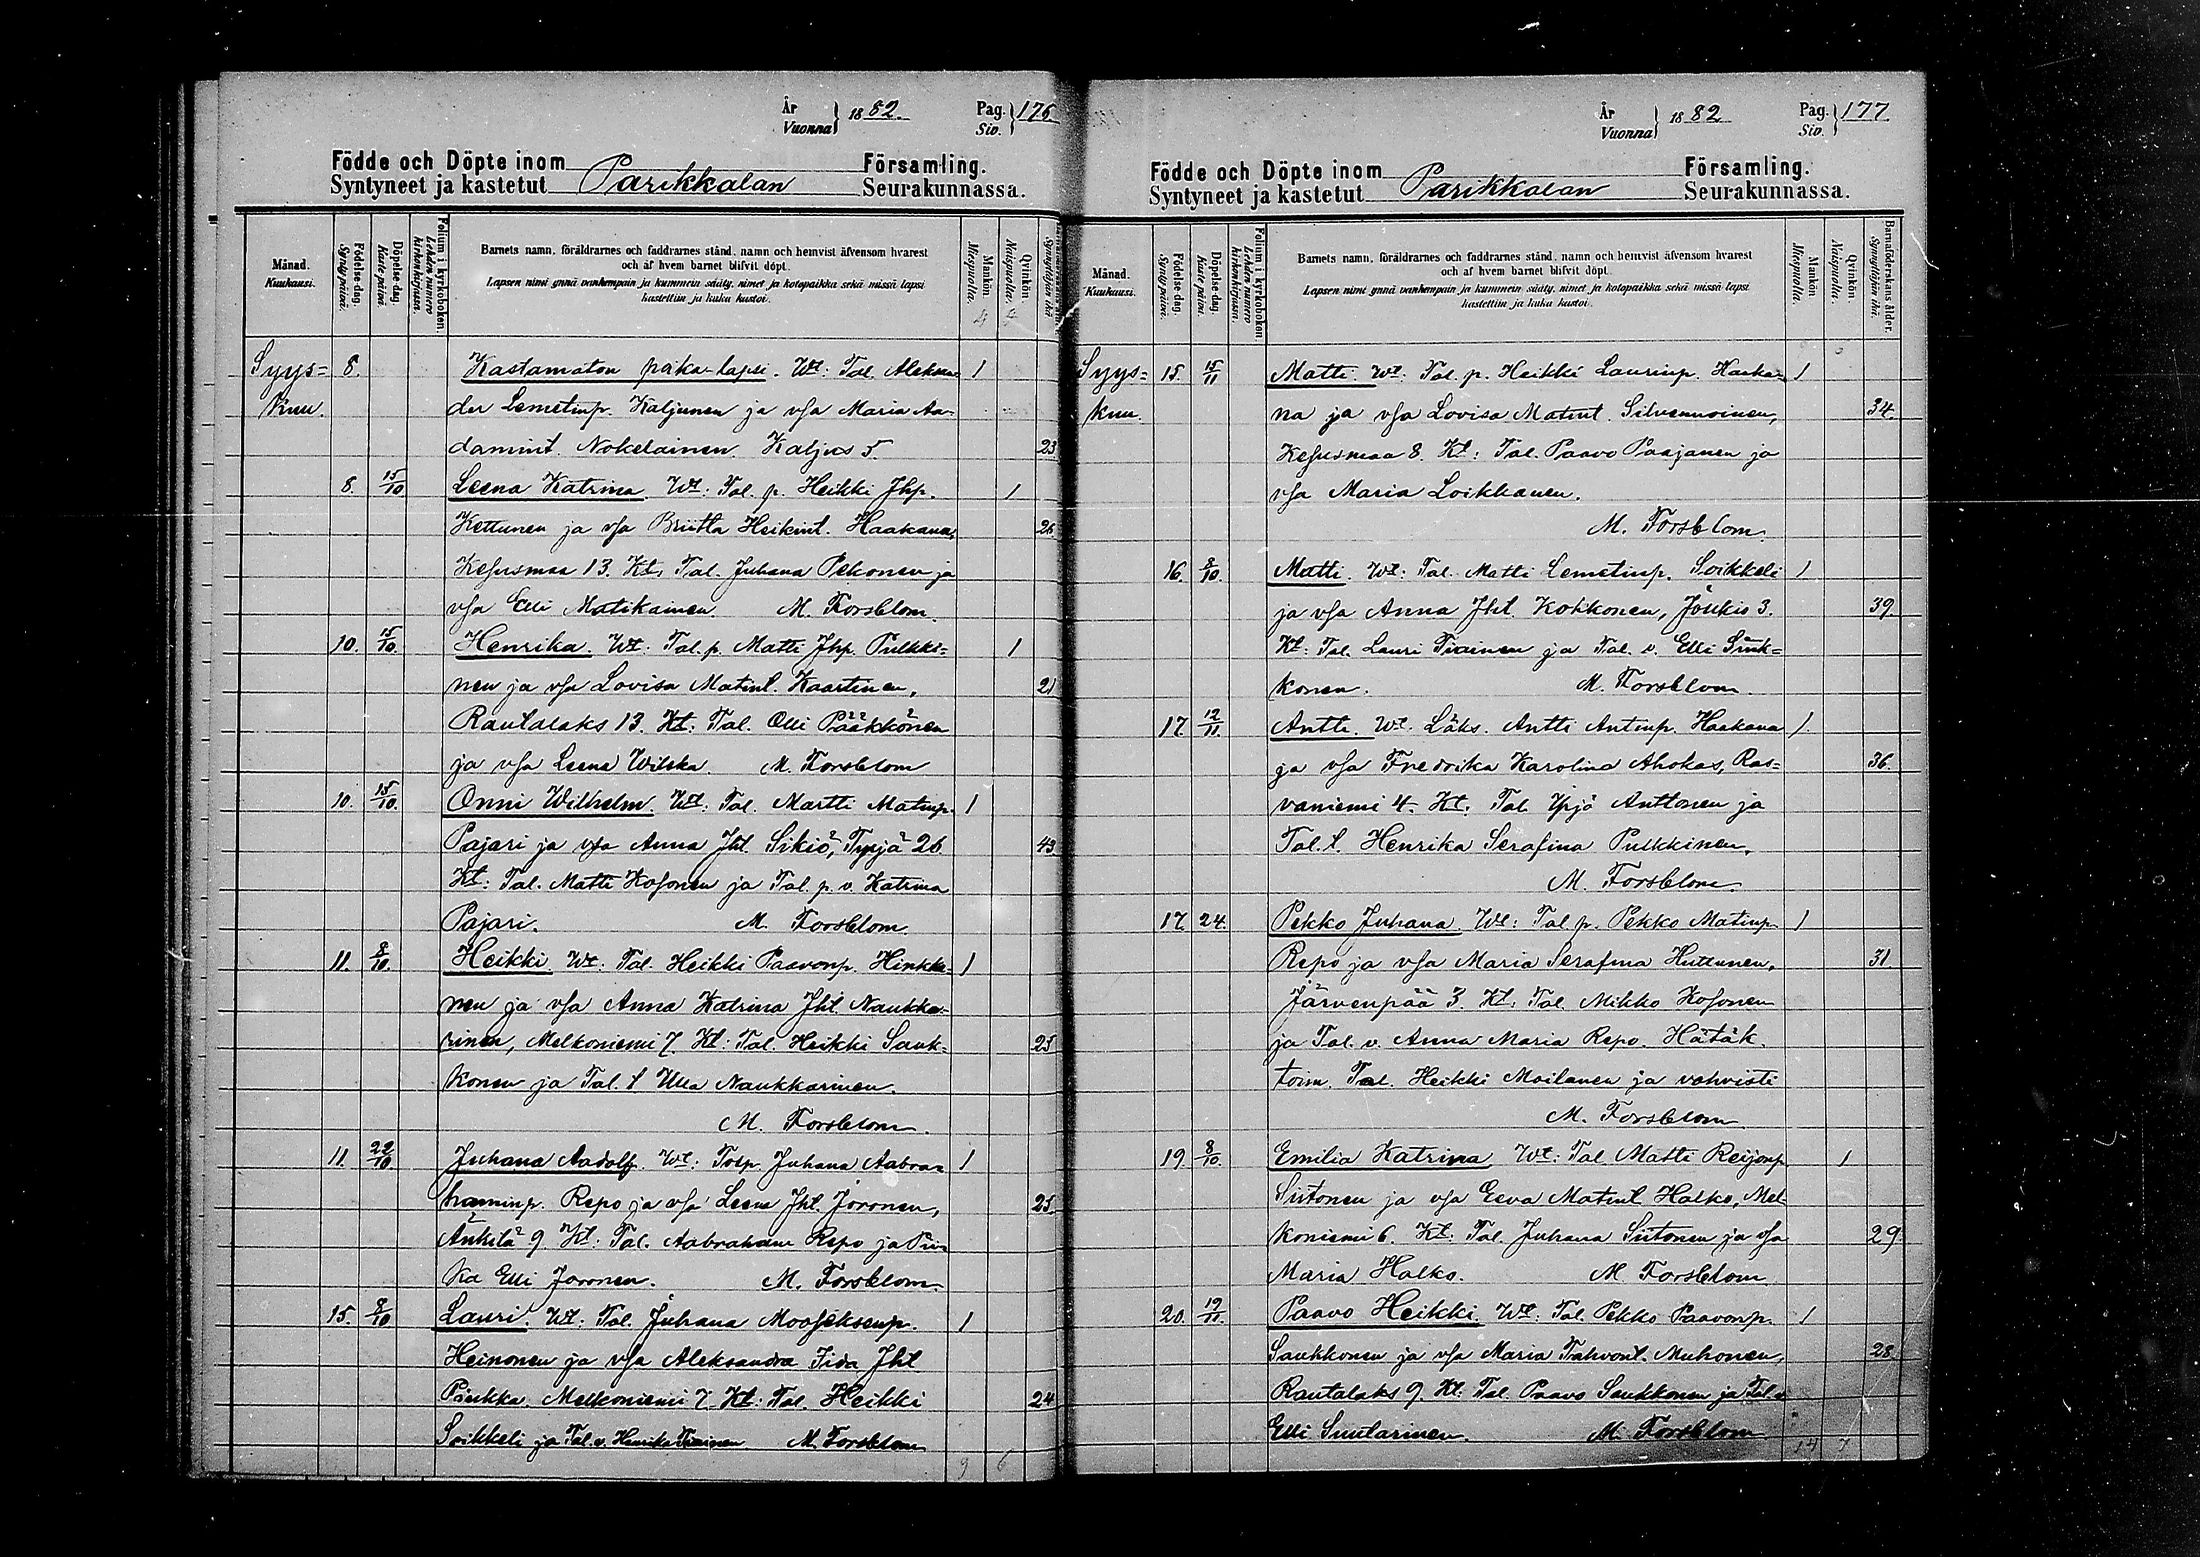 År
Vuonna } 1882. Pag. Siv. } 176
Födde och Döpte inom Församling.
Syntyneet ja kastetut Parikkalan Seurakunnassa.
Månad. Kuukausi.
Födelse-dag. Synty päivä.
Döpelse-dag. Kaste päivä.
Folium i kyrkoboken. Lehden numero kirkonkirjassa.
Barnets namn, föräldrarnes och faddrarnes stånd, namn och hemvist äfvensom hvarest
och af hvem barnet blifvit döpt.
Lapsen nimi ynnä vanhempain ja kummein sääty, nimet ja kotopaikka sekä missä lapsi
kastettiin ja kuka kastoi.
Mankön. Miespuolia.
Qvinkön. Naispuolia.
4
Syys= 8. Kastamaton poika-lapsi. Wt: Tal. Aleksan= 1
kuu. der Lemetinp. Kaljunen ja vsa Maria Aa=
damint. Nokelainen Kaljus 5. 23
8. 15/10 Leena Katrina Wt: Tal. p. Heikki Jhp. 1
Kettunen ja vsa Briitta Heikint. Haakana, 26
Kesusmaa 13. Kt: Tal. Juhana Pekonen ja
vsa Elli Matikainen. M. Forsblom.
10. 15/10. Henrika. Wt: Tal. p. Matti Jhp. Pulkki= 1
nen ja vsa Lovisa Matint. Kaartinen, 21
Rautalaks 13. Kt: Tal. Olli Pääkkönen
ja vsa Leena Wilska. M. Forsblom
10. 15/10. Onni Wilhelm. Wt: Tal. Martti Matinp. 1
Pajari ja vsa Anna Jht. Sikiö, Tyrjä 26. 43
Kt: Tal. Matti Kosonen ja Tal. p. v. Katrina
Pajari. M. Forsblom
11. 8/10. Heikki. Wt: Tal. Heikki Paavonp. Hinkka= 1
nen ja vsa Anna Katrina Jht. Naukka=
rinen, Melkoniemi 7. Kt: Tal. Heikki Sauk= 25
konen ja Tal. t Ulla Naukkarinen.
M. Forsblom.
11. 22/10. Juhana Aadolf. Wt: Tal. p. Juhana Aabra= 1
haminp. Repo ja vsa Leena Jht. Joronen, 25.
Änkilä 9. Kt: Tal. Aabraham Repo ja Pii=
ka Elli Joronen. M. Forsblom.
15. 8/10 Lauri. Wt: Tal. Juhana Mooseksenp. 1
Heinonen ja vsa Aleksandra Iida Jht
Melkoniemi 7. Kt: Tal. Heikki 24
Soikkeli ja Tal. v. Henrika Tiainen M. Forsblom
9 6
År
Vuonna } 1882 Pag. Siv. } 177.
Födde och Döpte inom Församling.
Syntyneet ja kastetut Parikkalan Seurakunnassa.
Månad. Kuukausi.
Födelse-dag. Synty päivä.
Döpelse-dag. Kaste päivä.
Folium i kyrkoboken. Lehden numero kirkonkirjassa.
Barnets namn, föräldrarnes och faddrarnes stånd, namn och hemvist äfvensom hvarest
och af hvem barnet blifvit döpt.
Lapsen nimi ynnä vanhempain ja kummein sääty, nimet ja kotopaikka sekä missä lapsi
kastettiin ja kuka kastoi.
Mankön. Miespuolia.
Qvinkön. Naispuolia.
Barnaföderskans ålder. Synnyttäjän ikä.
Syys= 15. 15/11 Matti. Wt: Tal. p. Heikki Laurinp. Haaka= 1
kuu. na ja vsa Lovisa Matint. Silvennoinen, 34.
Kesusmaa 8. Kt: Tal. Paavo Paajanen ja
vsa Maria Loikkanen.
M. Forsblom.
16. 8/10. Matti. Wt: Tal. Matti Lemetinp. Soikkeli 1
ja vsa Anna Jht. Kokkonen, Joukio 3. 39.
Kt: Tal. Lauri Tiainen ja Tal. v. Elli Sink=
konen. M. Forsblom.
17. 12/11. Antti. Wt: Läks. Antti Antinp. Haakana 1.
ja vsa Fredrika Karolina Ahokas, Ras= 36.
vaniemi 4. Kt: Tal. Yrjö Anttonen ja
Tal. t. Henrika Serafina Pulkkinen.
M. Forsblom.
17. 24. Pekko Juhana. Wt: Tal. p. Pekko Matinp. 1
Repo ja vsa Maria Serafina Huttunen, 31.
Järvenpää 3. Kt: Tal. Mikko Kosonen
ja Tal. v. Anna Maria Repo. Hätäk.
toim. Tal. Heikki Moilanen ja vahvisti
M. Forsblom
19 8/10. Emilia Katrina Wt: Tal. Matti Reijonp. 1
Siitonen ja vsa Eeva Matint. Halko, Mel=
koniemi 6. Kt: Tal. Juhana Siitonen ja vsa 29.
Maria Halko. M. Forsblom
20. 12/11. Paavo Heikki. Wt: Tal. Pekko Paavonp. 1
Saukkonen ja vsa Maria Tahvont. Muhonen, 28
Rautalaks 9. Kt: Tal. Paavo Saukkonen ja Tal. v
Elli Suutarinen. M. Forsblom
14 7